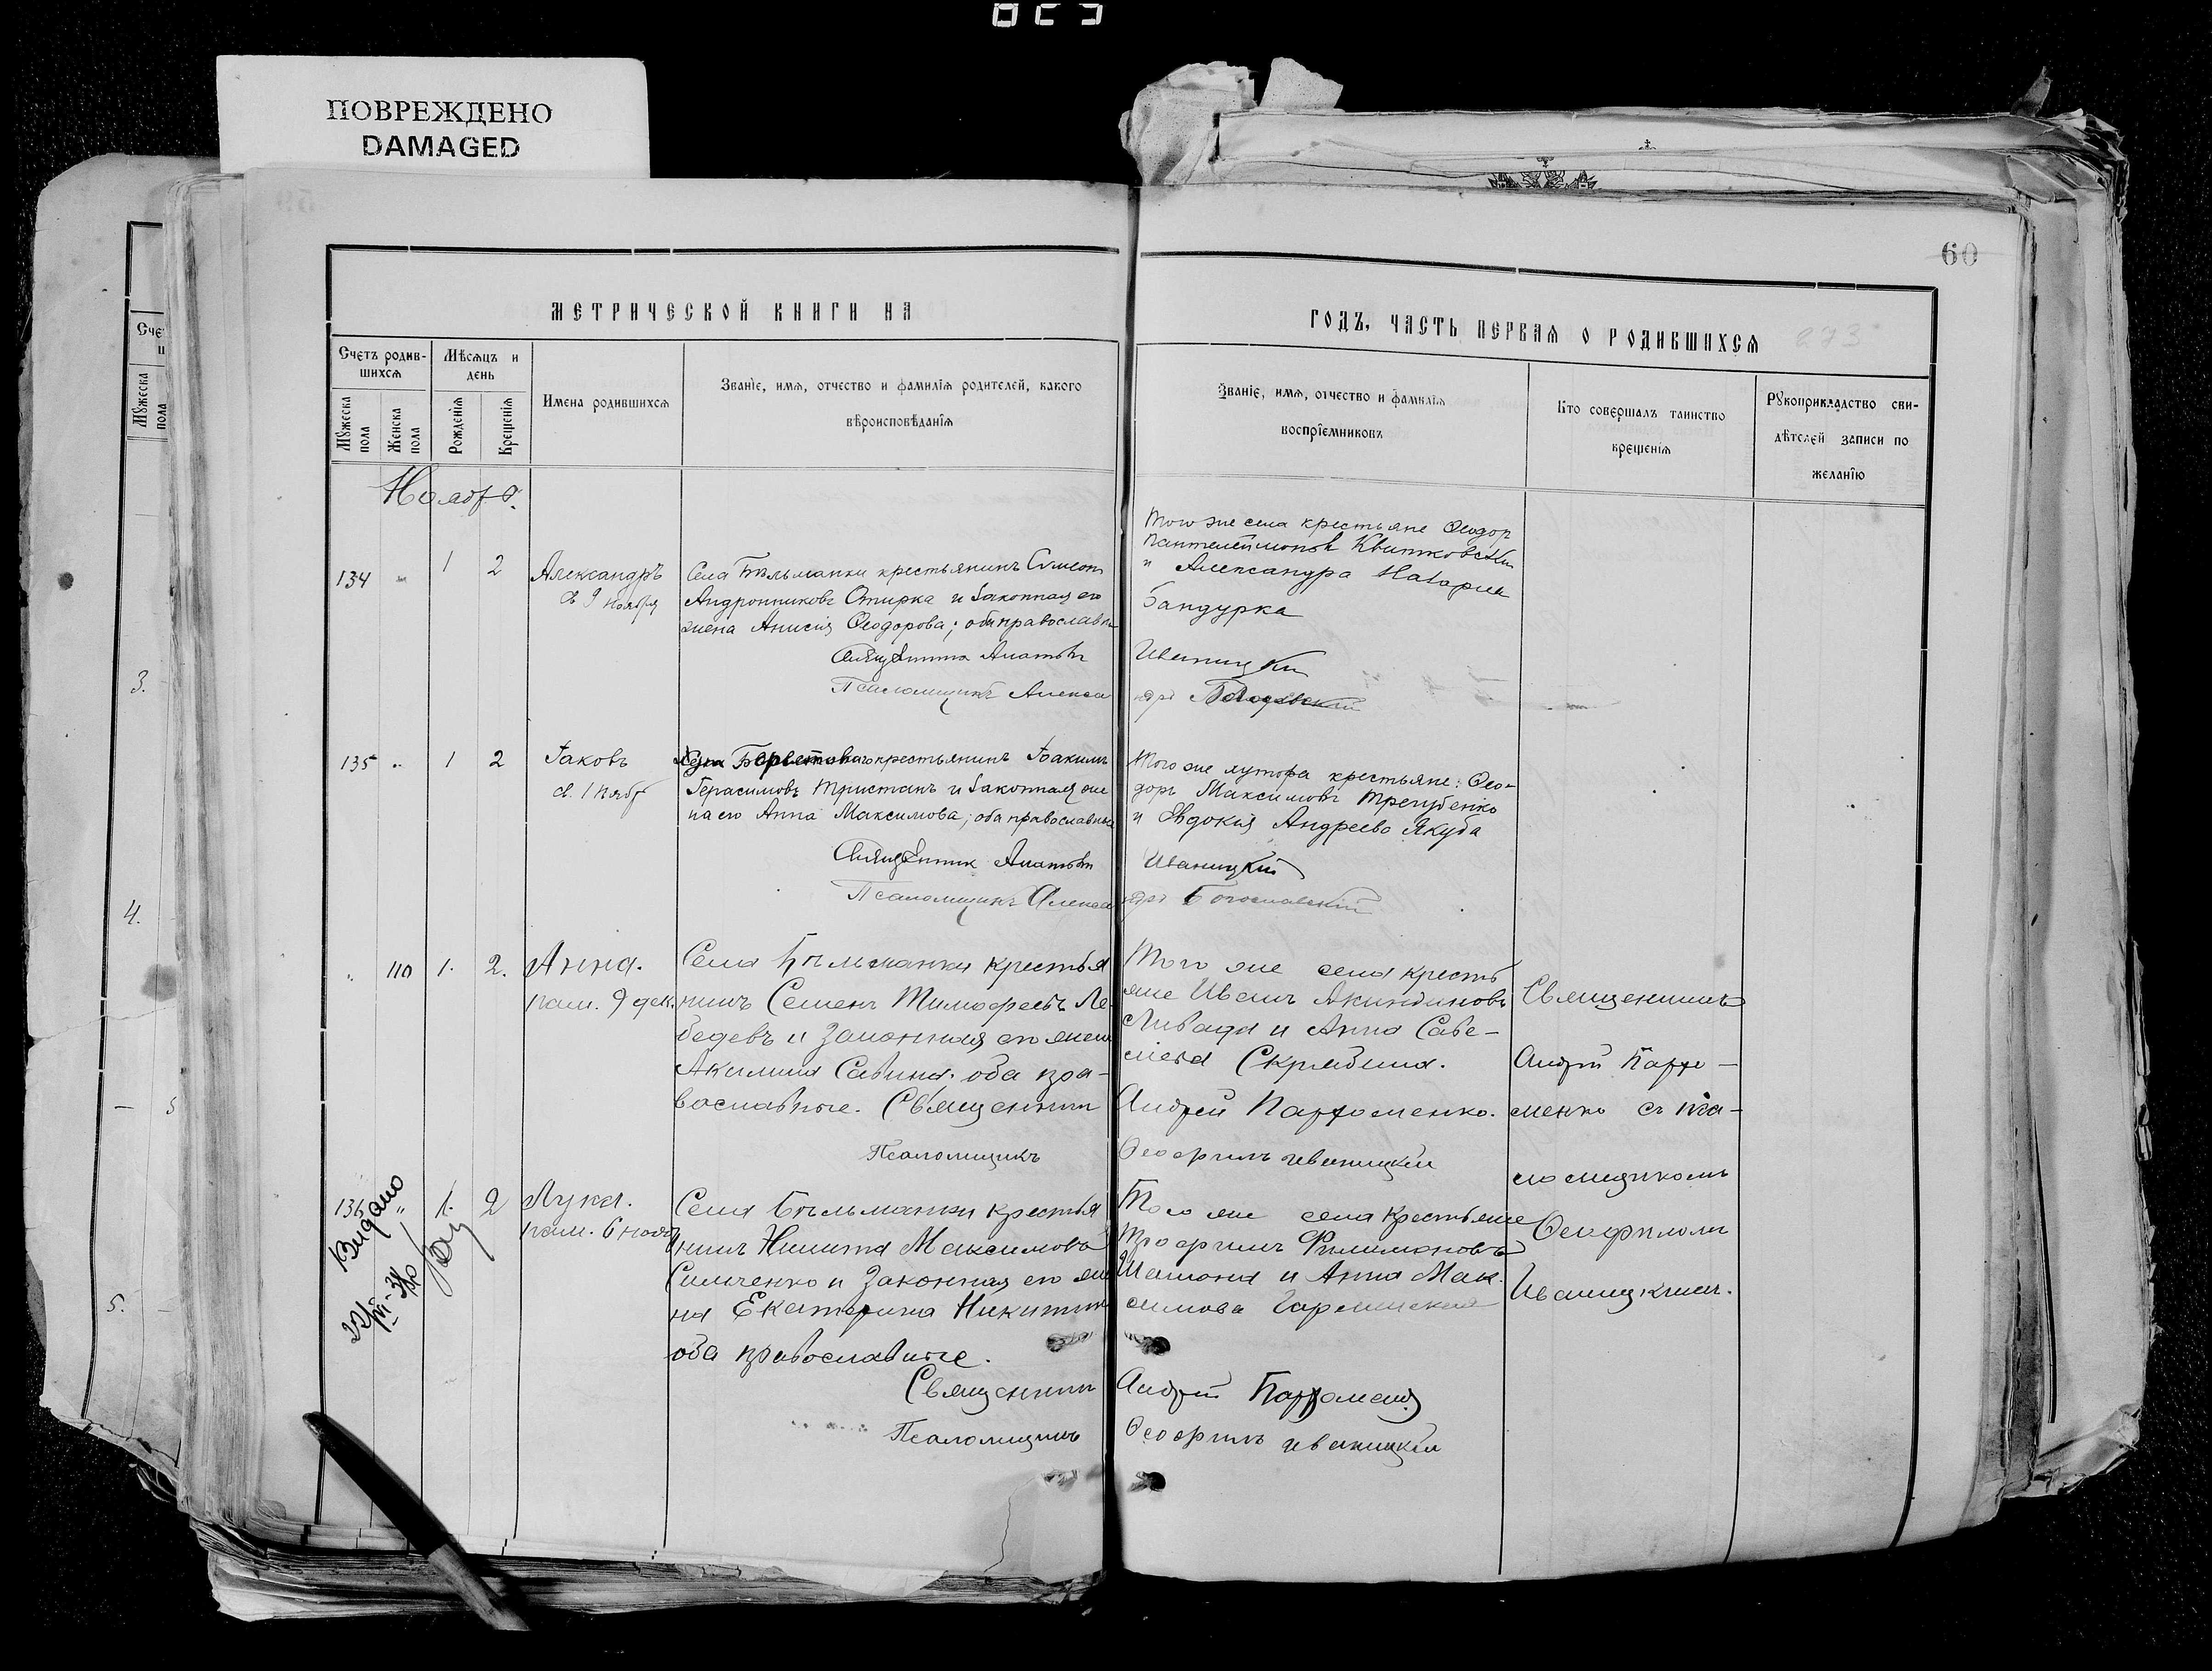 ПОВРЕЖДЕНО
DAMAGED
60
МЕТРИЧЕСКОЙ КНИГИ НА
ГОДЪ, ЧАСТЬ ПЕРВАЯ О РОДИВШИХСЯ
273
Счетъ родив-
шихся
Мужеска
пола
Женска
пола
Мѣсяцъ и
день
Рожденія
Крещенія
Имена родившихся
Званіе, имя, отчество и фамилія родителей, какого
вѣроисповѣданія
Званіе, имя, отчество и фамилія
воспріемниковъ
Кто совершалъ таинство
крещенія
Рукоприкладство сви-
дѣтелей записи по
желанію
Мужеска
пола
3.
4.
5.
Ноября.
134
1
2
Александръ
9 ноября
Села Бѣльманки крестьянинъ Симеон
Андрониковъ Спирка и законная его
жена Анисія Ѳеодорова; оба православн
Псаломщикъ Алекса
Того же села крестьяне Ѳеодор
Пантелеймоновъ Квитковскій
и Александра
Бандурка
Иваницкій
135
"
1
2
Іаковъ
Берестоваго крестьянинъ Іоакимъ
Герасимовъ Тристанъ и законная же
на его Анна Максимова; оба православные
Псаломщикъ Алекса
Того же хутора крестьяне: Ѳео-
доръ Максимовъ
и Евдокія Андреева Якуба
Иваницкій
ндръ Богословскій
110
1.
2.
Анна.
пам. 9 дек.
Села Бѣльманки крестья
нинъ Семенъ Тимофеевъ Ле-
бедевъ и законная его жена
Акилина Савина. оба пра-
вославные. Священник
Псаломщикъ
Того же села кресть
яне Иванъ Акиндиновъ
Ливада и Анна Саве-
льева Скрябина.
Андрей Пархоменко.
Ѳеофилъ Иваницкій
Священникъ
Андрей Пархо-
менко съ пса-
ломщикомъ
Ѳеофиломъ
Иваницкимъ.
136
"
1.
2
Лука.
пам. 6 нояб
Села Бѣльманки крестья
нинъ Никита Максимовъ
Симченко и законная его же
на Екатерина Никитина
оба православные.
Священник
Псаломщикъ
Того же села крестьяне
Трофимъ Филимоновъ
и Анна Мак-
симова
Андрей Пархоменко
Ѳеофилъ Иваницкій
Видано